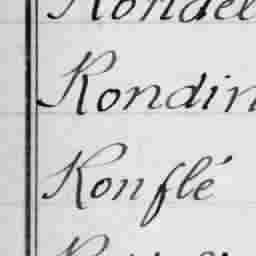 Rondel
Rondin
Ronflé